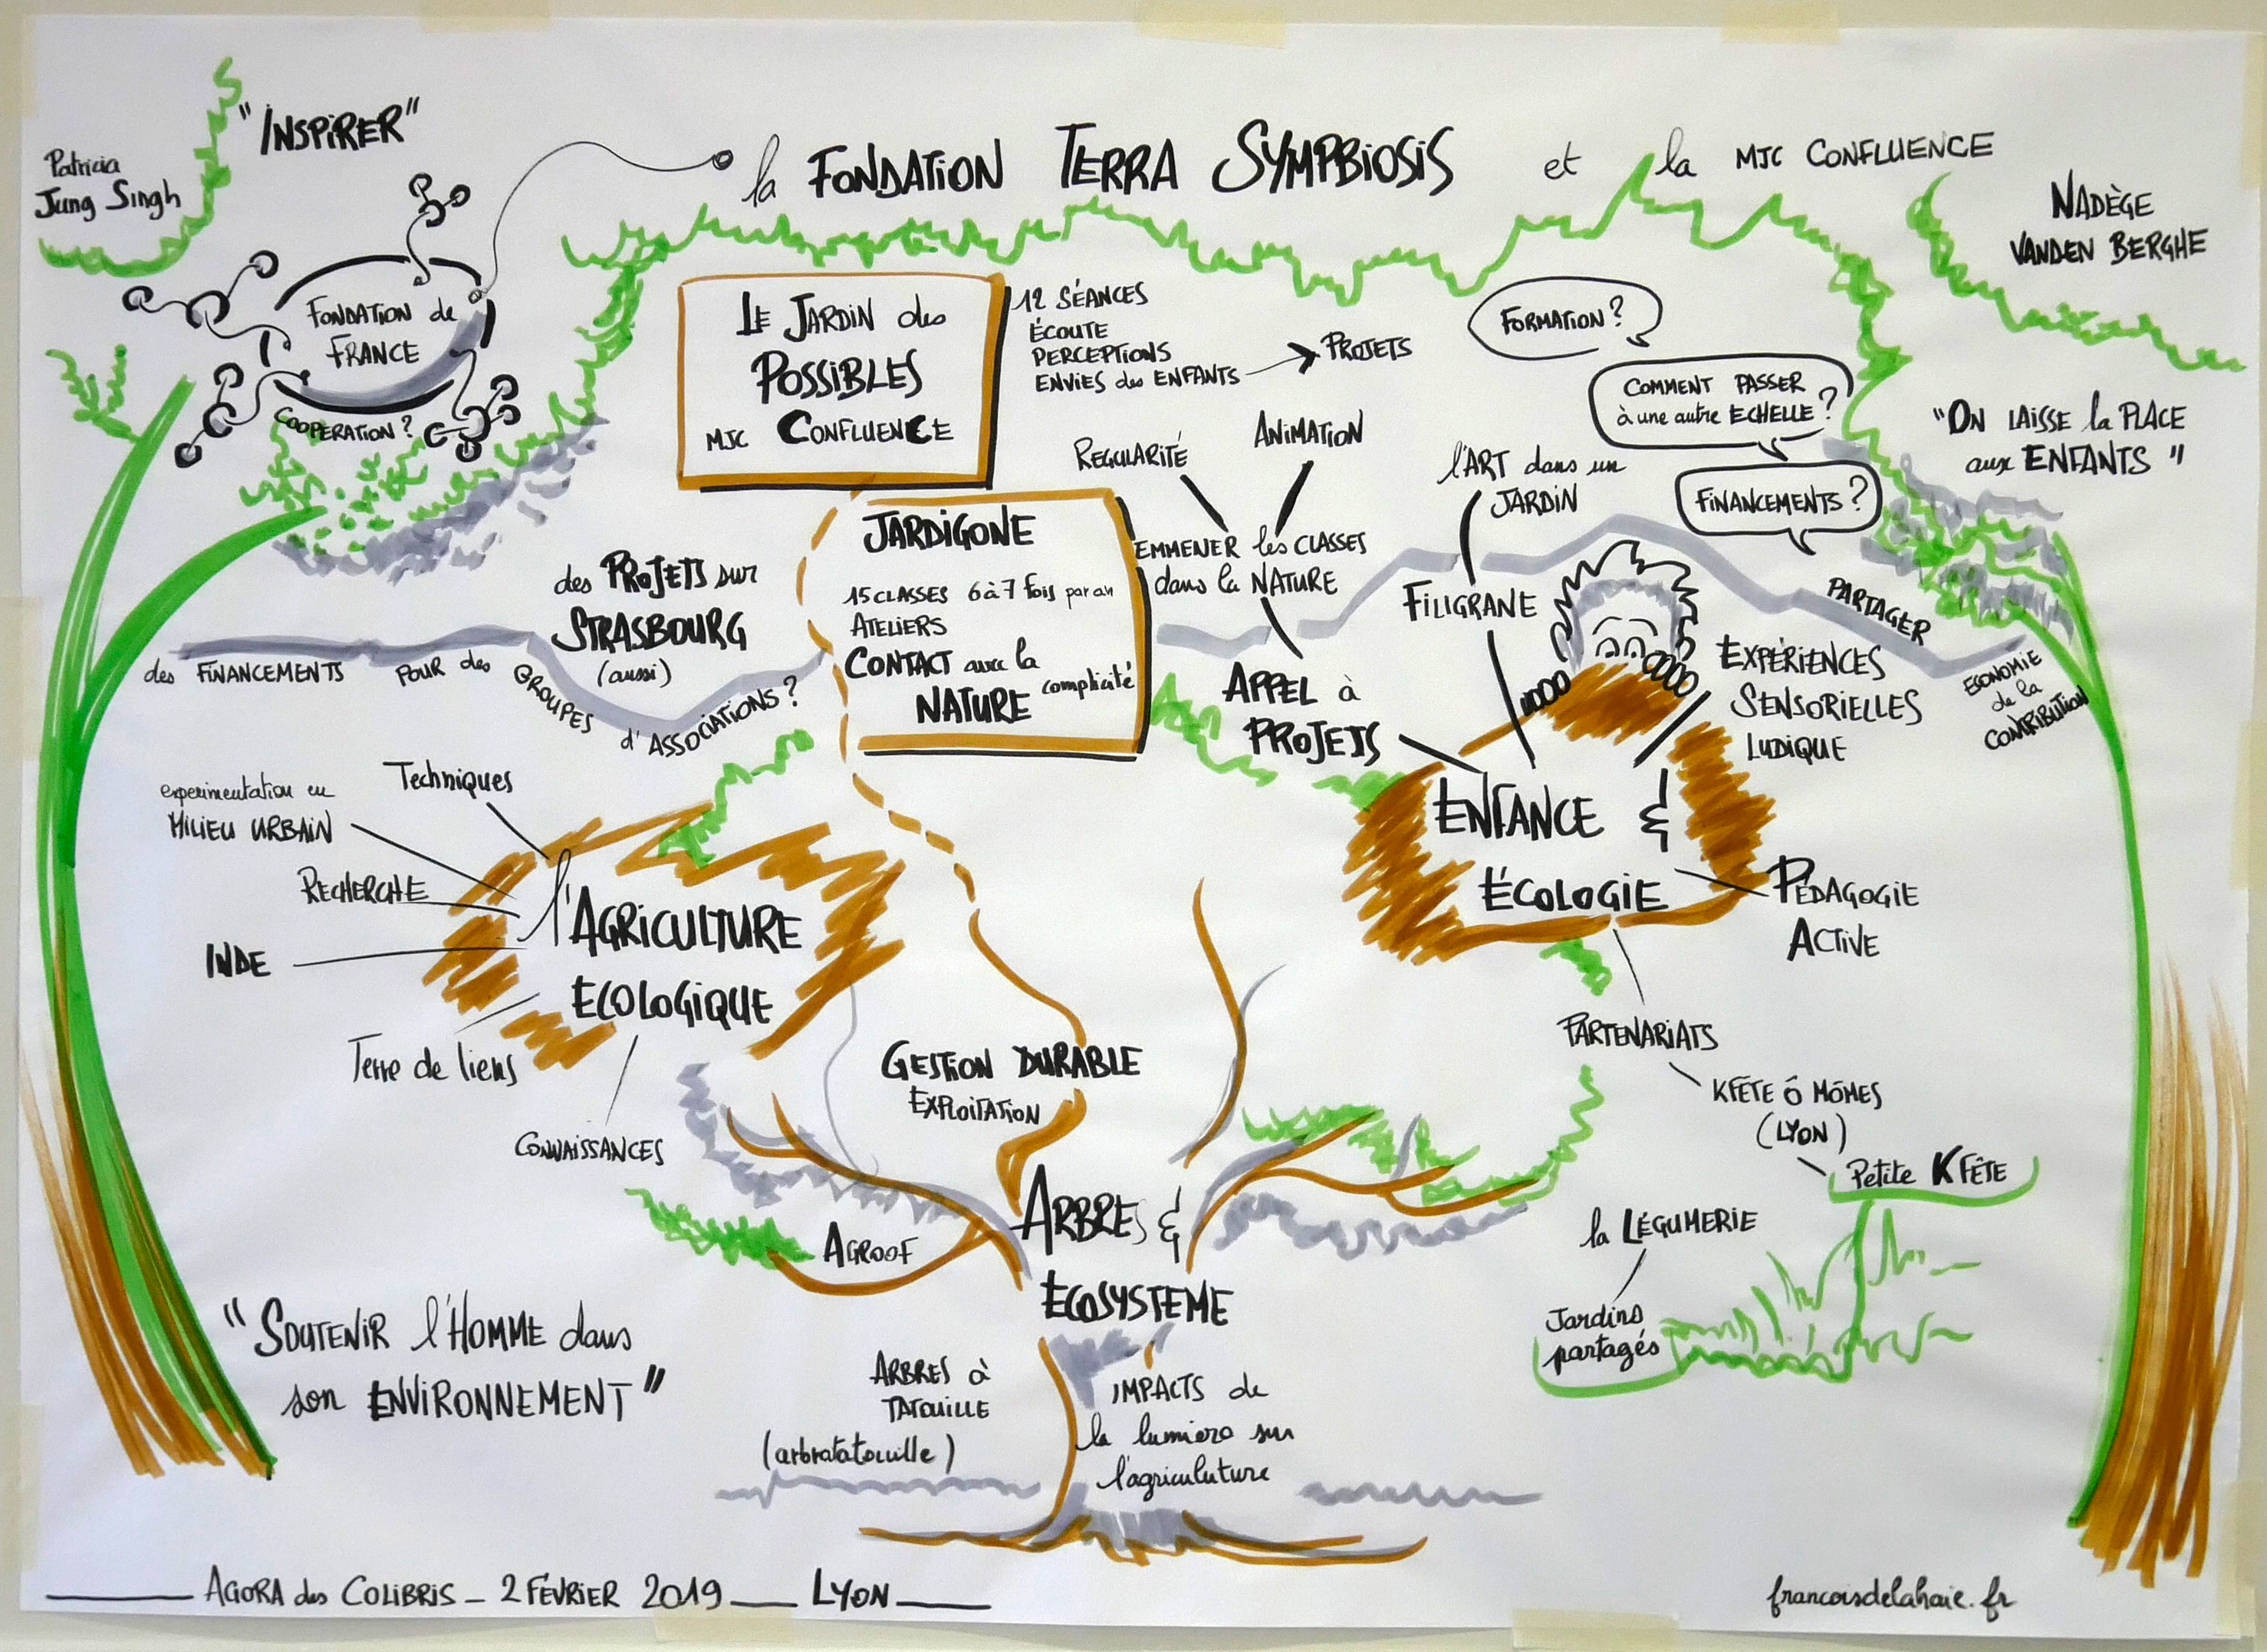 "INSPIRER"
Patricia
Jung Singh
la FONDATION TERRA SYMPBIOSIS et la MJC CONFLUENCE
NADÈGE
VANDEN BERGHE
FONDATION de
FRANCE
COOPERATION?
LE JARDIN des
POSSIBLES
MJC CONFLUENCE
12 SÉANCES
ÉCOUTE
PERCEPTIONS
ENVIES des ENFANTS
PROJETS
FORMATION?
COMMENT PASSER
à une autre ECHELLE?
FINANCEMENTS?
"ON LAISSE la PLACE
aux ENFANTS"
REGULARITÉ
ANIMATION
EMMENER les CLASSES
dans la NATURE
l'ART dans un
JARDIN
FILIGRANE
APPEL à
PROJETS
JARDIGONE
15 CLASSES 6 à 7 fois par an
ATELIERS
CONTACT avec la
NATURE complicité
des PROJETS sur
STRASBOURG
(aussi)
des FINANCEMENTS POUR des GROUPES d'ASSOCIATIONS?
PARTAGER
ECONOMIE
de la
CONTRIBUTION
EXPÉRIENCES
SENSORIELLES
LUDIQUE
ENFANCE &
ÉCOLOGIE
PÉDAGOGIE
ACTIVE
PARTENARIATS
KFÊTE Ô MÔMES
(LYON)
Petite KFÊTE
la LÉGUMERIE
Jardins
partagés
Techniques
experimentation en
MILIEU URBAIN
RECHERCHE
INDE
Terre de liens
CONNAISSANCES
l'AGRICULTURE
ECOLOGIQUE
GESTION DURABLE
EXPLOITATION
ARBRES &
ECOSYSTEME
AGROOF
ARBRES à
TATOUILLE
(arbratatouille)
IMPACTS de
la lumiero sur
l'agricluture
"SOUTENIR l'HOMME dans
son ENVIRONNEMENT"
AGORA des COLIBRIS _ 2 FÉVRIER 2019 __ LYON __
francoisdelahaie.fr